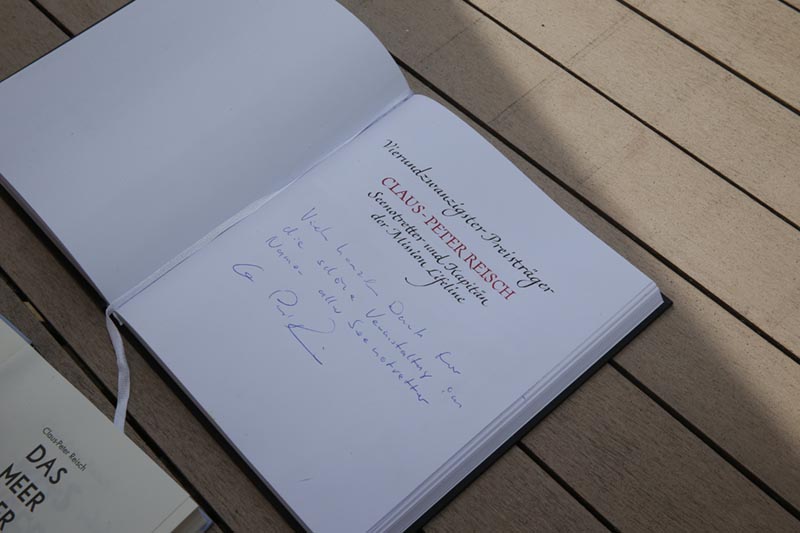 Vierundzwanzigster Preisträger
CLAUS-PETER REISCH
Seenotretter und Kapitän
der Mission Lifeline
Viele herzlichen Dank für
die schöne Veranstaltung im
Namen aller Seenotretter
Claus-Peter Reisch
DAS
MEER